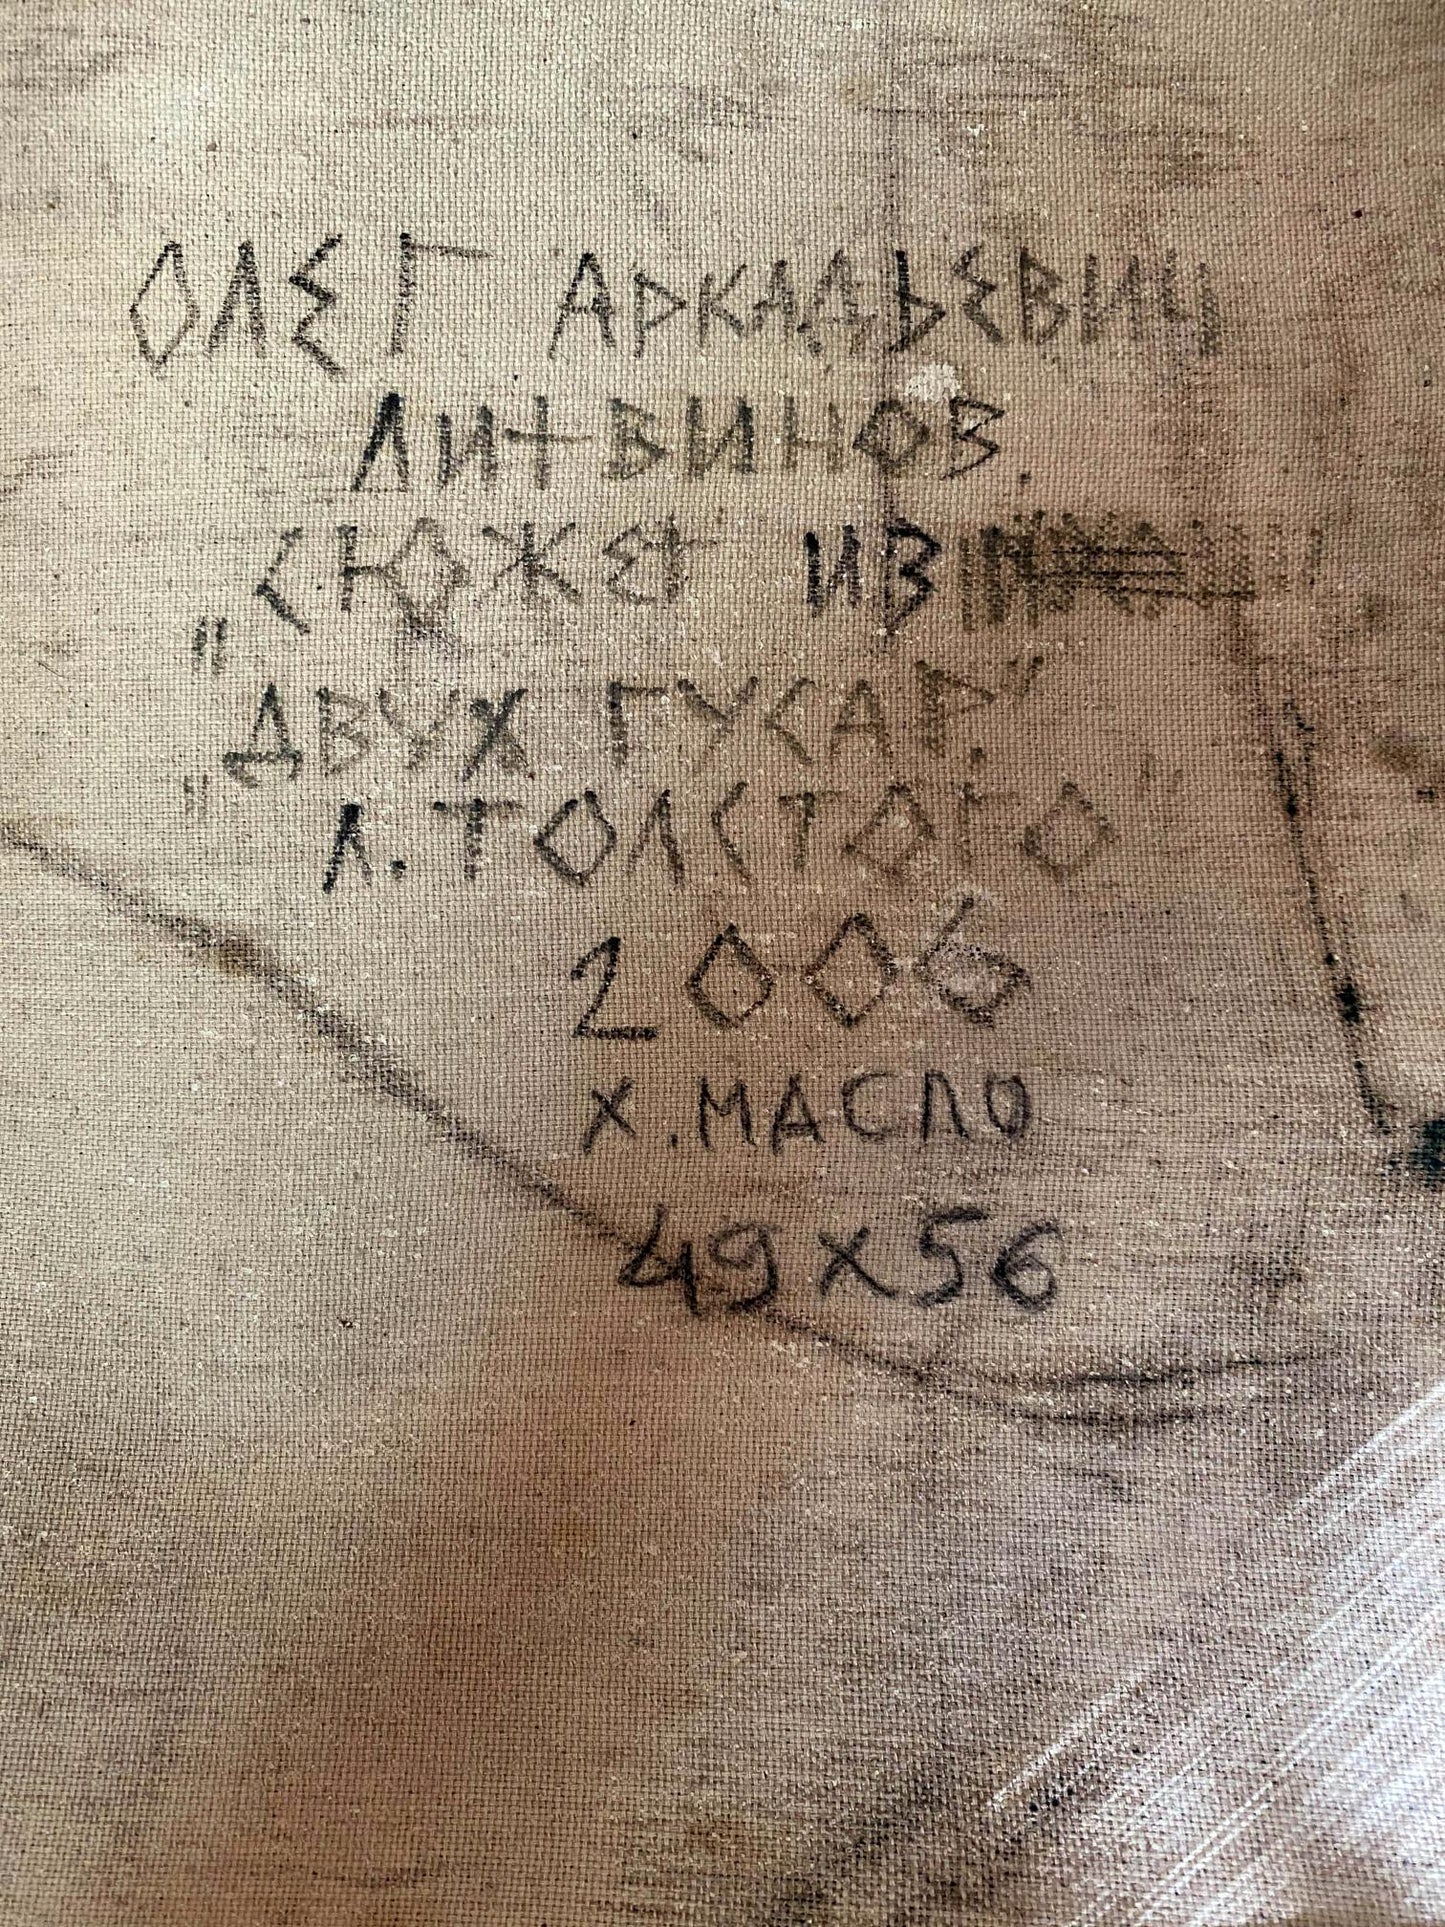 ОЛЕГ АРКАДЬЕВИЧ
ЛИТВИНОВ.
СЮЖЕТ ИЗ
"ДВУХ ГУСАР."
"Л. ТОЛСТОГО"
2006
Х. МАСЛО
49х56